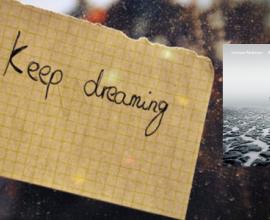 Keep dreaming